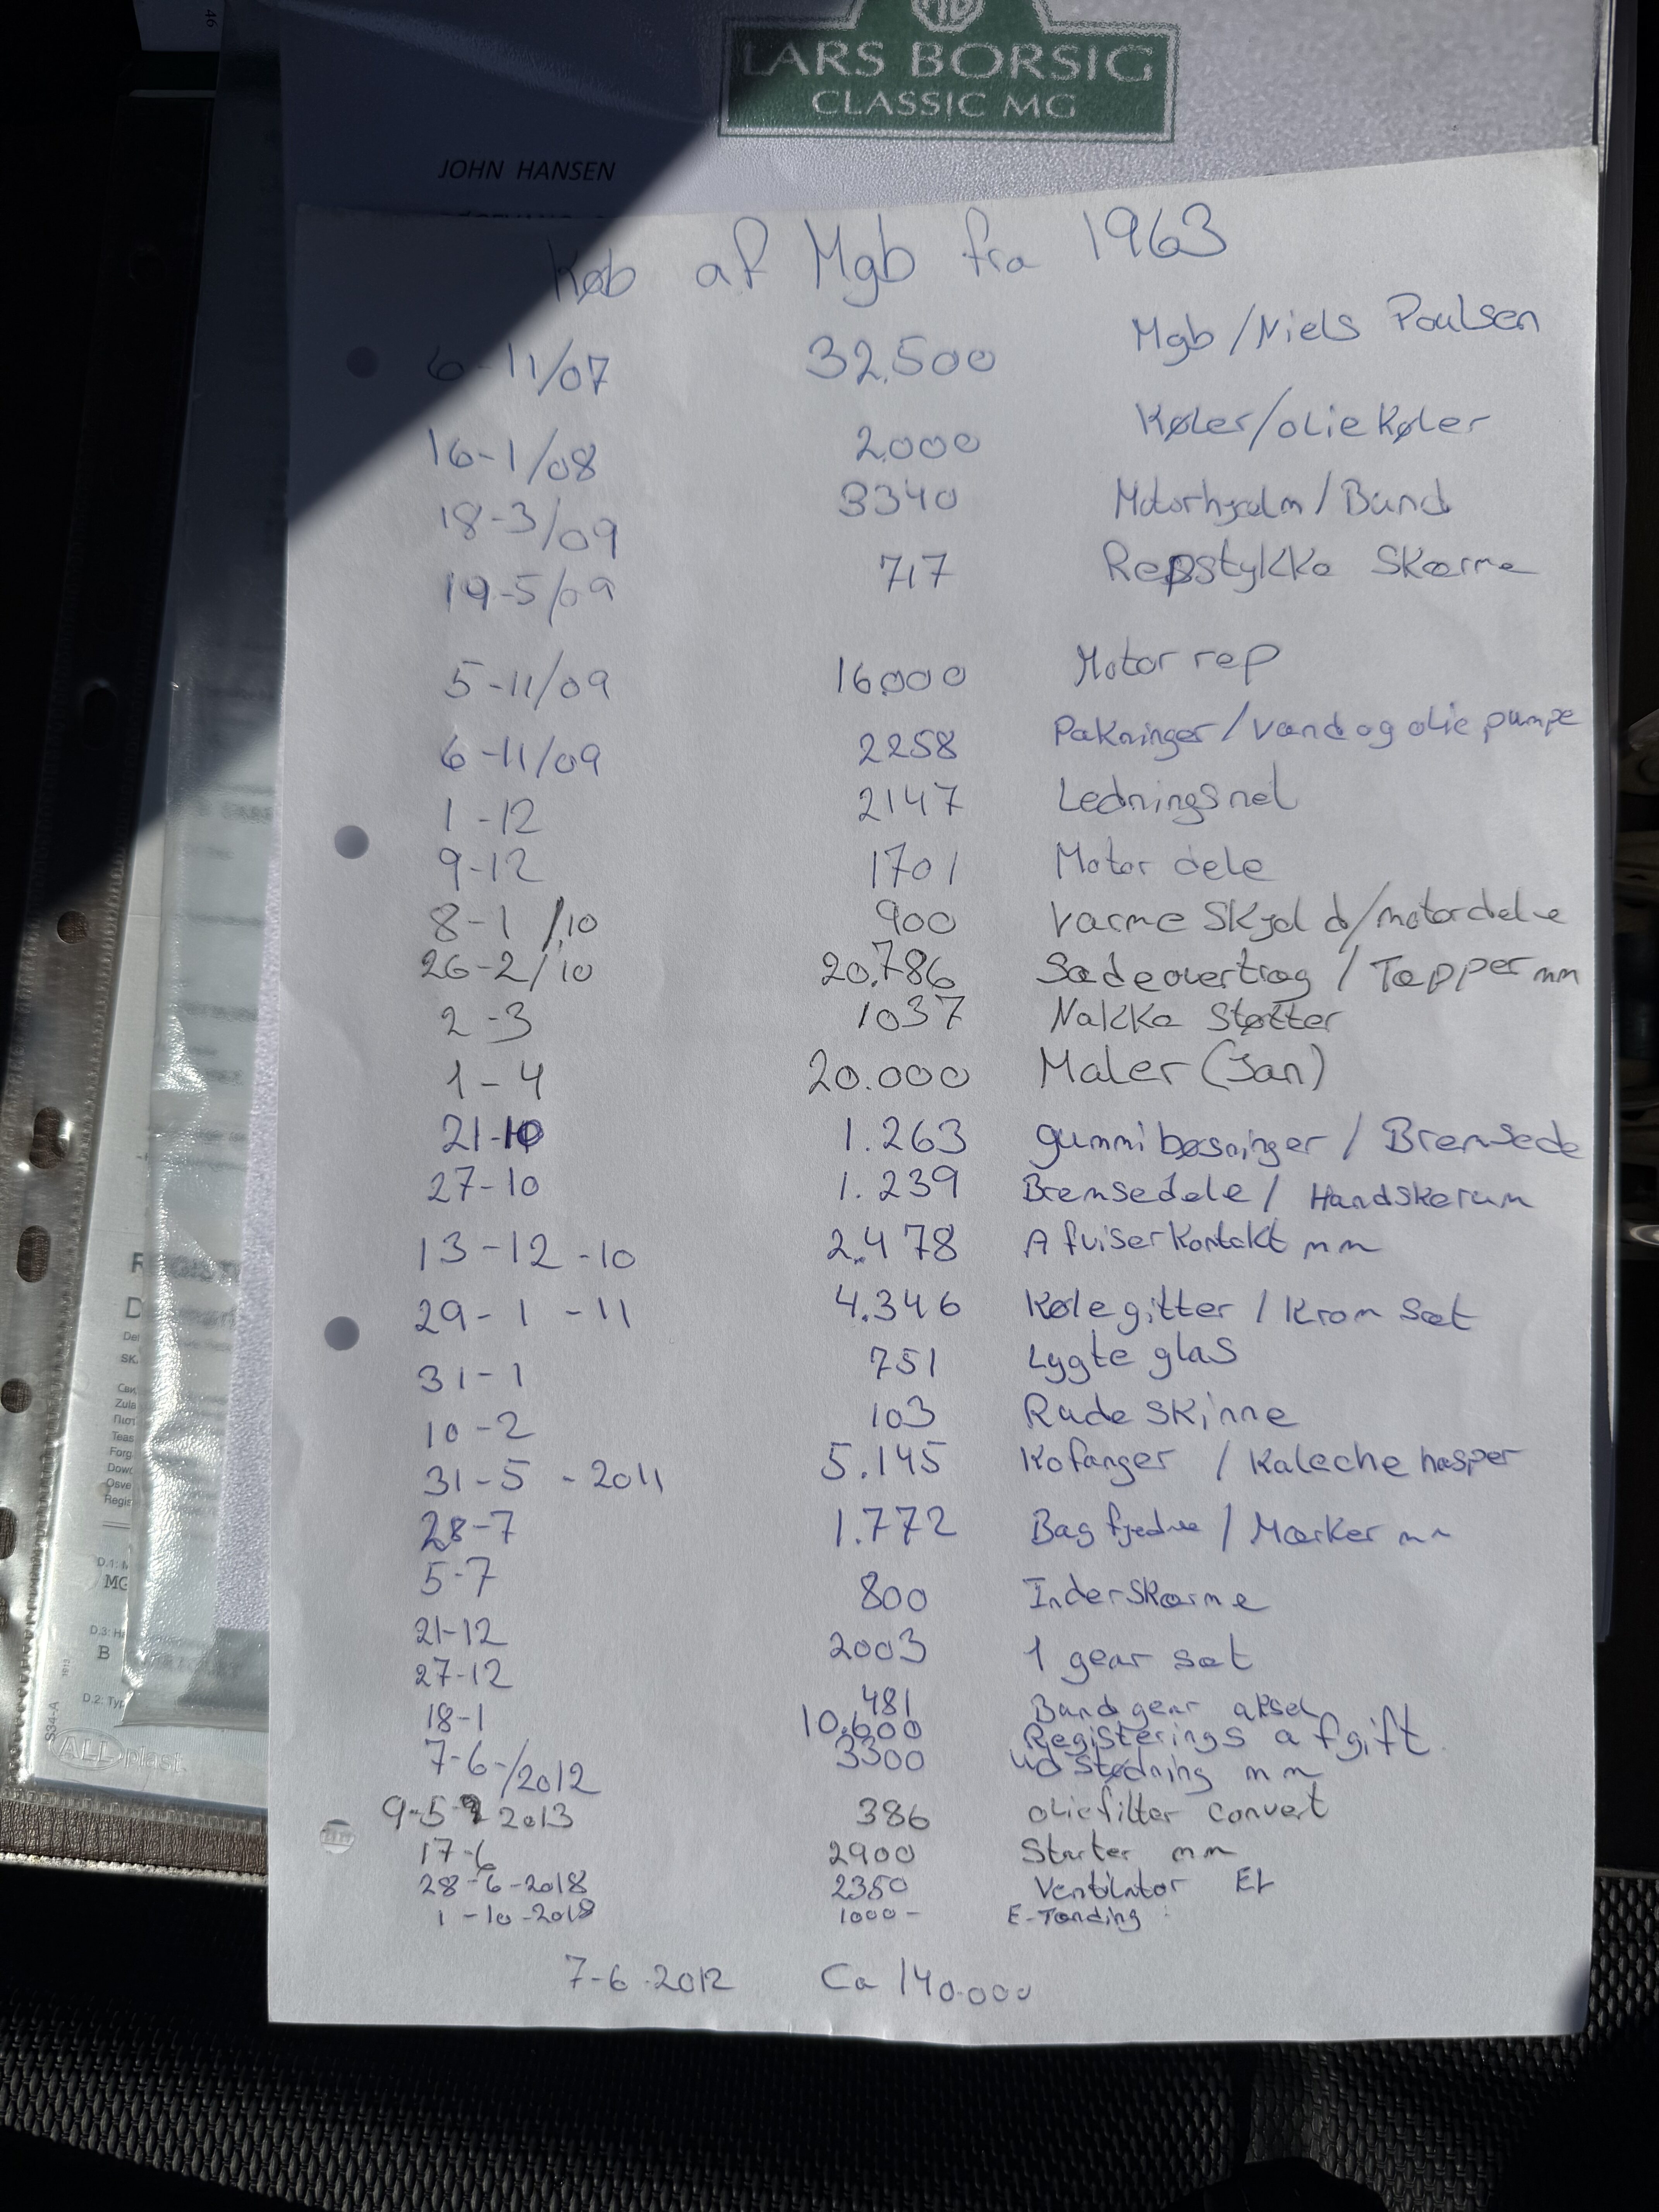 LARS BORSIG
CLASSIC MG
JOHN HANSEN
Køb af Mgb fra 1963
6-11/07 32.500 Mgb/Niels Poulsen
16-1/08 2.000 Køler/olie køler
18-3/09 3340 Motorhjælm/Bund
19-5/09 717 Repstykke Skærme
5-11/09 16000 Motor rep
6-11/09 2258 Pakninger/vand og olie pumpe
1-12 2147 Ledningsnet
9-12 1701 Motor dele
8-1/10 900 Varme Skjold/motordele
26-2/10 20.786 Sædeovertræg/Tæpper mm
2-3 1037 Nakke Støtter
1-4 20.000 Maler (Jan)
21-10 1.263 gummibøsninger/Bremsede
27-10 1.239 Bremsedele/Handskerum
13-12-10 2.478 Afviserkontakt mm
29-1-11 4.346 Kølegitter/Krom sæt
31-1 751 Lygte glas
10-2 103 Rude skinne
31-5-2011 5.145 Kofanger/Kaleche hasper
28-7 1.772 Bag fjedre/Mærker mm
5-7 800 Inderskærme
21-12 2003 1 gear sæt
27-12 481 Bund gear aksel
18-1 10.600 Registerings afgift
7-6-/2012 3300 udstødning mm
9-5-2013 386 oliefilter convert
17-6 2900 Starter mm
28-6-2018 2350 Ventilator EL
1-10-2018 1000- E-Tænding
7-6-2012 Ca 140.000
D.1:
MG
D.3:
B
D.2: Typ
S34-A
ALL plast